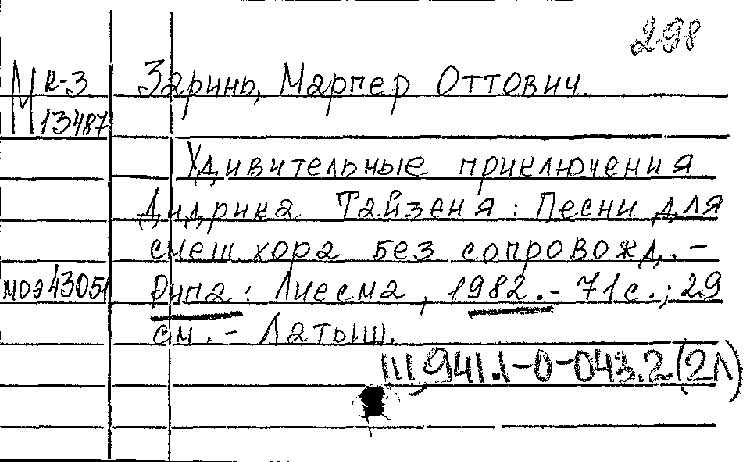 298
М К-3 Заринь, Маргер Оттович.
13487
Удивительные приключения
Дидрика Тайзеня: Песни для
смеш хора без сопровожд. -
МОЭ 43051 Рига: Лиесма, 1982. - 71 с.; 29
см. - Латыш.
Ш 941.1-0-043.2(2Л)